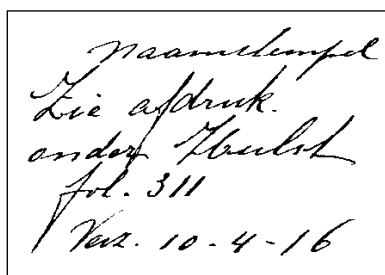 naamstempel
Zie afdruk.
onder Hulst
fol. 311
Verz. 10-4-16